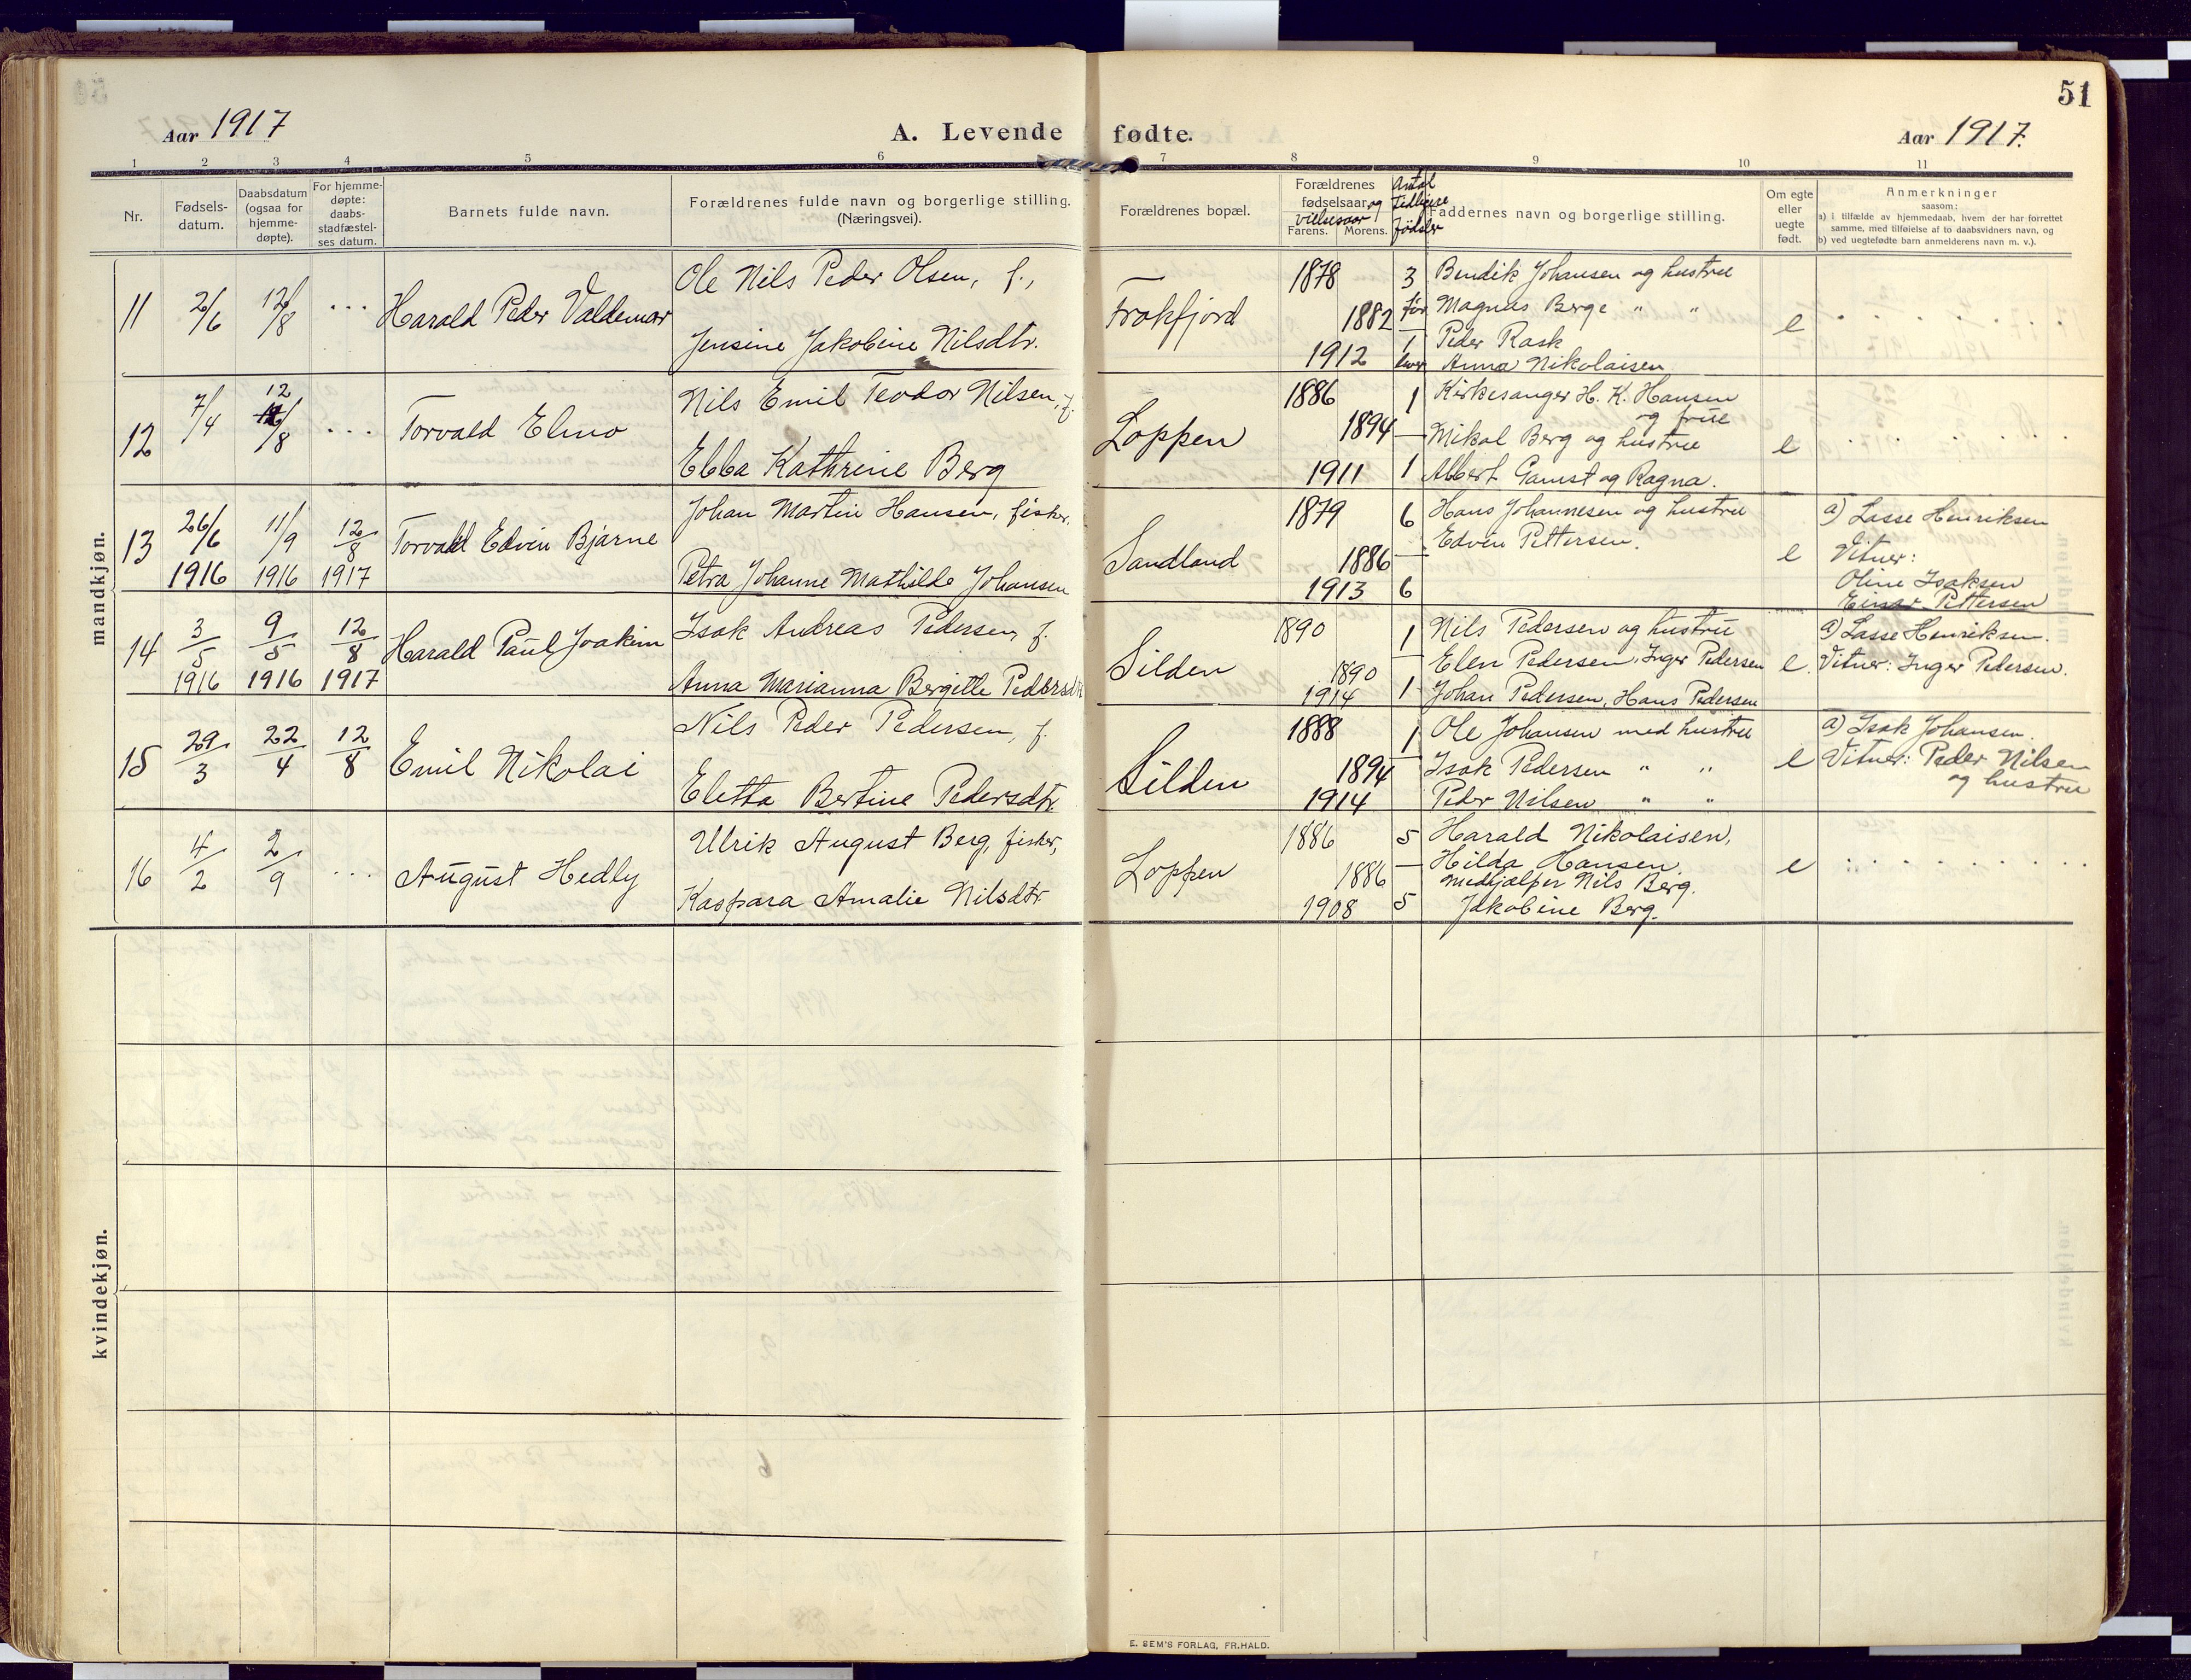 51
Aar 1917
A. Levende fødte.
Aar 1917.
1 2 3 4 5 6 7 8 9 10 11
Nr.
Fødsels-
datum.
Daabsdatum
(ogsaa for
hjemme-
døpte).
For hjemme-
døpte:
daabs-
stadfæstel-
ses datum.
Barnets fulde navn.
Forældrenes fulde navn og borgerlige stilling.
(Næringsvei).
Forældrenes bopæl.
Forældrenes
fødselsaar og
vielsesaar
Farens. Morens.
Antal
tidligere
fødsler
Faddernes navn og borgerlige stilling.
Om egte
eller
uegte
født.
Anmerkninger
saasom:
a) i tilfælde av hjemmedaab, hvem der har forrettet
samme, med tilføielse af to daabsvidners navn, og
b) ved uegtefødte barn anmelderens navn m. v.).
mandkjøn.
11 2/6 12/8 ... Harald Peder Valdemar
Ole Nils Peder Olsen, f.,
Jensine Jakobine Nilsdtr.
Frakfjord
1878
1882
1912
3
før
1
lever
Bendik Johansen og hustru
Magnus Berge " "
Peder Rask
Anna Nikolaisen
e
12 7/4 12/8 ... Torvald Elmo
Nils Emil Teodor Nilsen, f.
Ebba Kathrine Berg
Loppen
1886
1894
1911
1
1
Kirkesanger H. K. Hansen
og frue
Mikal Berg og hustru
Albert Gamst og Ragna.
e
13 26/6 1916 11/9 1916 12/8 1917 Torvald Edvin Bjarne
Johan Martin Hansen, fisker.
Petra Johanne Mathilde Johansen
Sandland
1879
1886
1913
6
6
Hans Johannesen og hustru
Edvin Pettersen.
e
a) Lasse Henriksen
Vitner:
Oline Isaksen
Einar Pettersen
14 3/5 1916 9/5 1916 12/8 1917 Harald Paul Joakim
Isak Andreas Pedersen, f.
Anna Marianna Bergitte Pedersdtr
Silden
1890
1890
1914
1
1
Nils Pedersen og hustru
Elen Pedersen, Inger Pedersen
Johan Pedersen, Hans Pedersen
e.
a) Lasse Henriksen.
Vitner: Inger Pedersen.
15 29/3 22/4 12/8 Emil Nikolai
Nils Peder Pedersen, f.
Eletta Bertine Pedersdtr.
Silden
1888
1894
1914
1
Ole Johansen med hustru
Isak Pedersen " "
Peder Nilsen " "
e
a) Isak Johansen.
Vitner: Peder Nilsen
og hustru
16 4/2 2/9 ... August Hedly
Ulrik August Berg, fisker,
Kaspara Amalie Nilsdtr
Loppen
1886
1886
1908
5
5
Harald Nikolaisen,
Hilda Hansen.
Medhjælper Nils Berg.
Jakobine Berg.
e
kvindekjøn.
E. SEM'S FORLAG, FR.HALD.